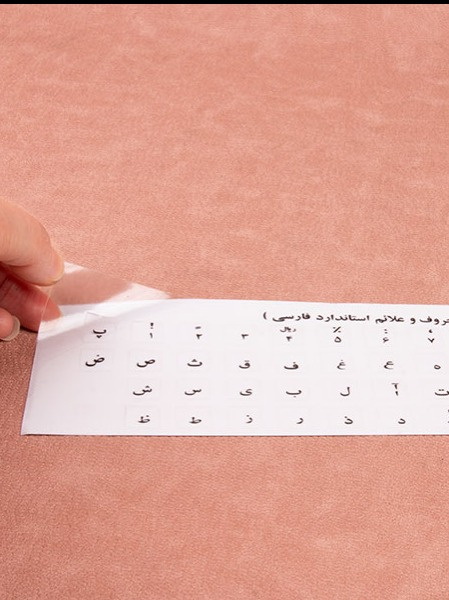 حروف و علائم استاندارد فارسی )
! = ریال ٪ : ،
پ ۱ ۲ ۳ ۴ ۵ ۶ ۷
ض ص ث ق ف غ ع ه
ش س ی ب ل آ ا ت
ظ ط ز ر ذ د